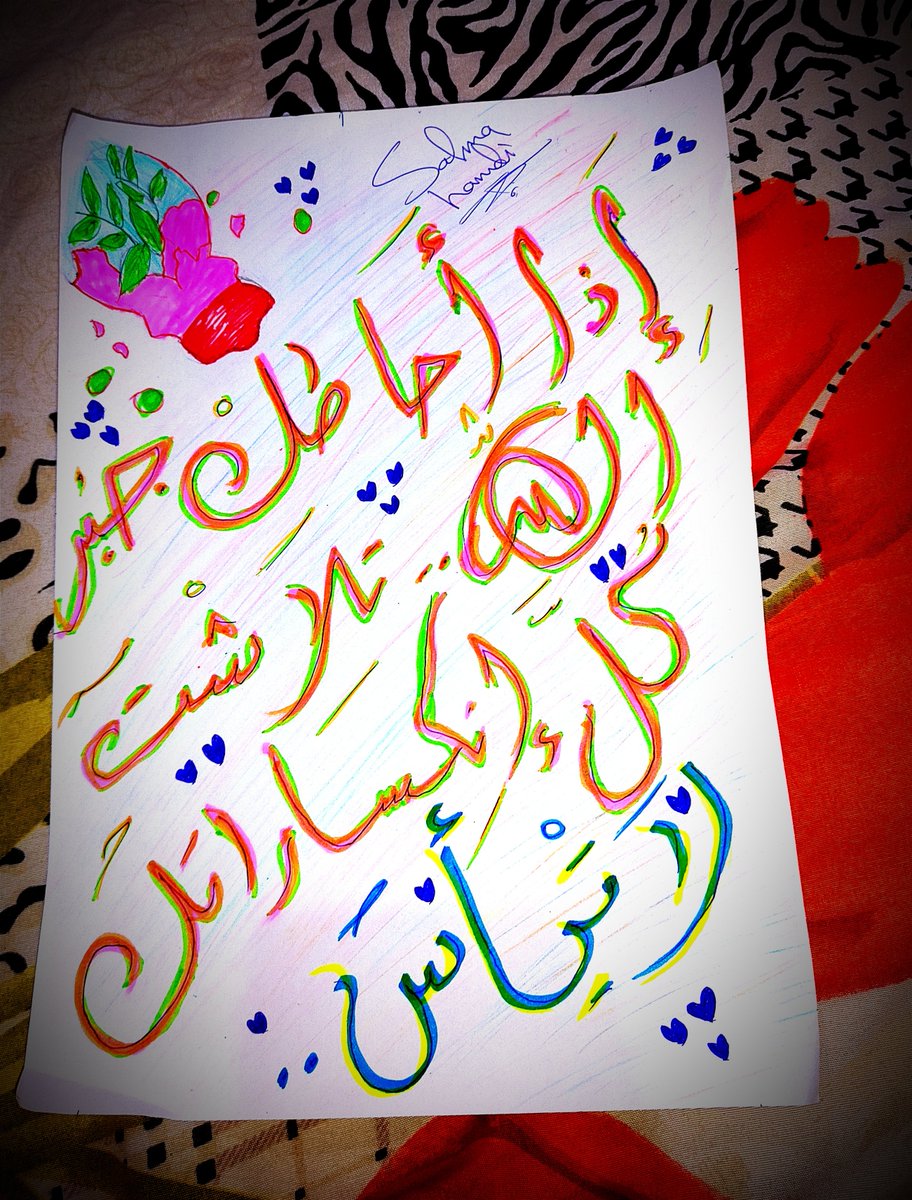 Salma
hamdi
إذا أحاطك جبر
الله.. تلاشت
كل إنكساراتك
لا تيأس..